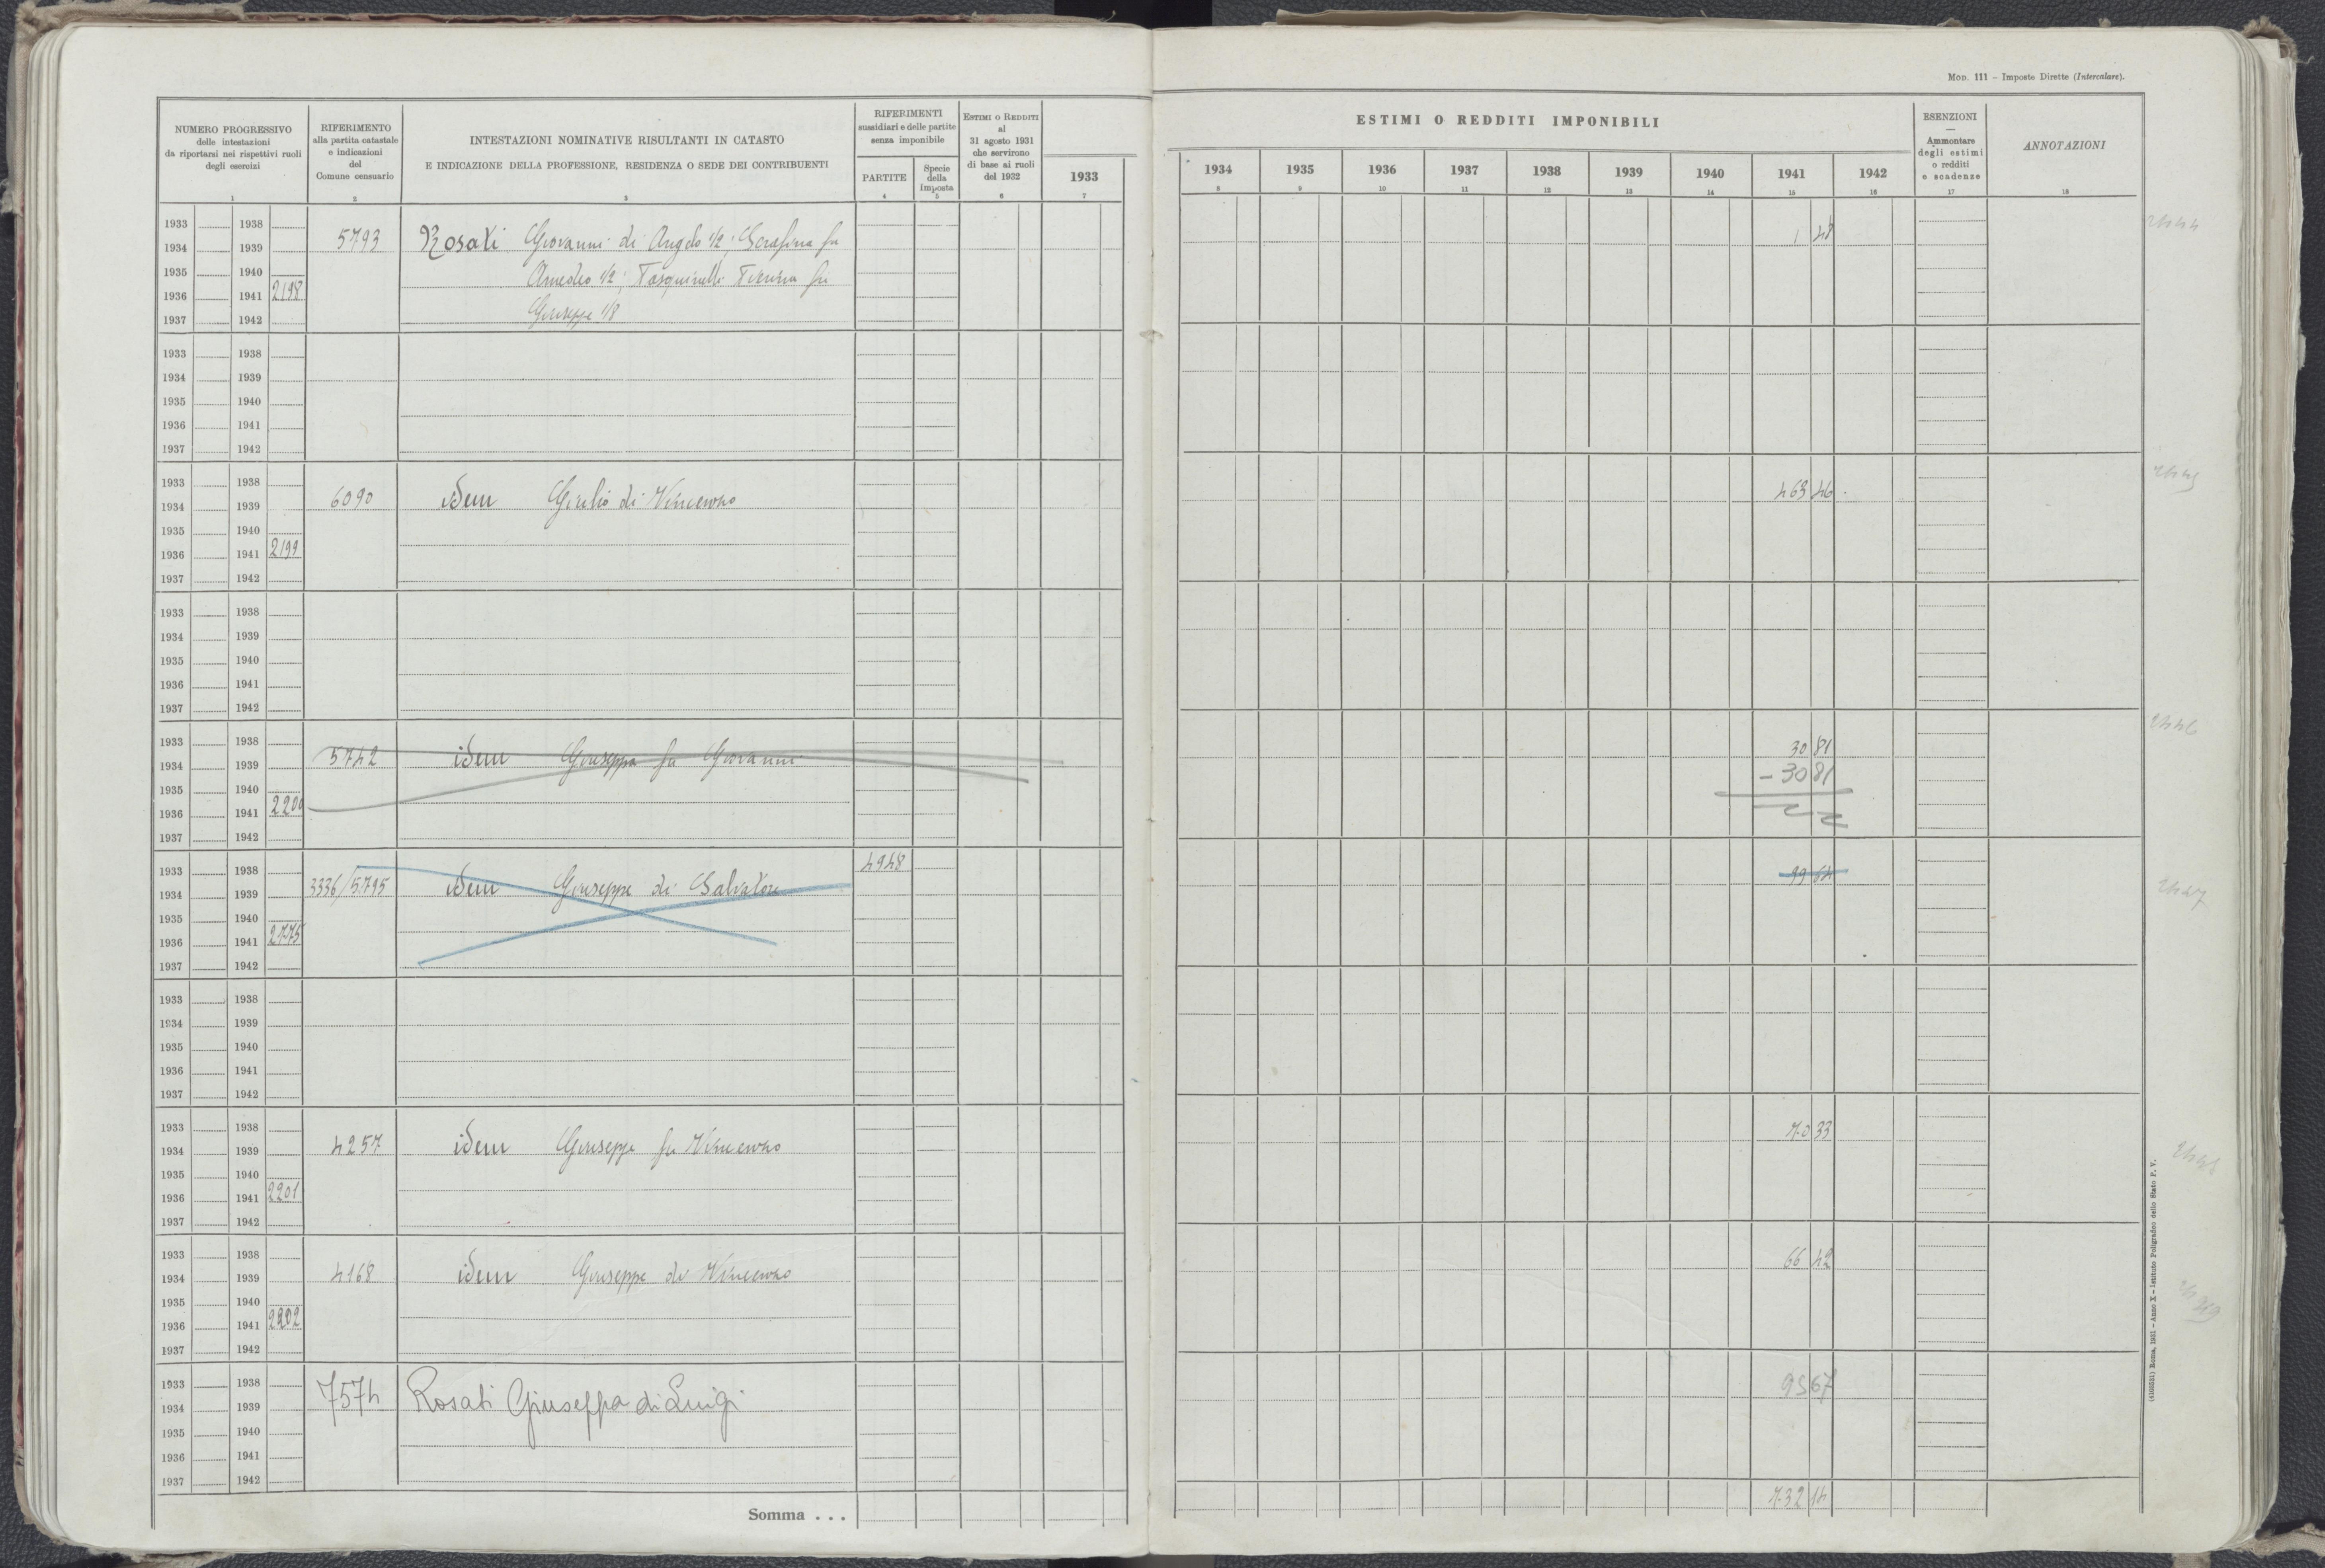 MOD. 111 – Imposte Dirette (Intercalare).
NUMERO PROGRESSIVO
delle intestazioni
da riportarsi nei rispettivi ruoli
degli esercizi
1
RIFERIMENTO
alla partita catastale
e indicazioni
del
Comune censuario
2
INTESTAZIONI NOMINATIVE RISULTANTI IN CATASTO
E INDICAZIONE DELLA PROFESSIONE, RESIDENZA O SEDE DEI CONTRIBUENTI
3
RIFERIMENTI
sussidiari e delle partite
senza imponibile
PARTITE
4
Specie
della
imposta
5
ESTIMI O REDDITI
al
31 agosto 1931
che servirono
di base ai ruoli
del 1932
6
1933
7
ESTIMI O REDDITI IMPONIBILI
1934 1935 1936 1937 1938 1939 1940 1941 1942
8 9 10 11 12 13 14 15 16
ESENZIONI
—
Ammontare
degli estimi
o redditi
e scadenze
17
ANNOTAZIONI
18
1933 1938
1934 1939 5793 Rosati Giovanni di Angelo 1/2; Serafina fu 1 48
1935 1940 Amedeo 1/2; Pasquinelli fu
1936 1941 2198
1937 1942 Giuseppe 1/8
1933 1938
1934 1939
1935 1940
1936 1941
1937 1942
1933 1938
1934 1939 6090 idem Giulio di Vincenzo 463 46
1935 1940
1936 1941 2199
1937 1942
1933 1938
1934 1939
1935 1940
1936 1941
1937 1942
1933 1938
1934 1939 5742 idem Giuseppa fu Giovanni 30 81
1935 1940 – 30 81
1936 1941 2200
1937 1942
1933 1938 4948
1934 1939 3336/5795 idem Giuseppe di Salvatore 99 64
1935 1940
1936 1941 2775
1937 1942
1933 1938
1934 1939
1935 1940
1936 1941
1937 1942
1933 1938
1934 1939 4257 idem Giuseppe fu Vincenzo 70 33
1935 1940
1936 1941 2201
1937 1942
1933 1938
1934 1939 4168 idem Giuseppe di Vincenzo 66 42
1935 1940
1936 1941 2202
1937 1942
1933 1938
1934 1939 7574 Rosati Giuseppa di Luigi 95 67
1935 1940
1936 1941
1937 1942
Somma . . . 732 14
(4100531) Roma, 1931 – Anno X – Istituto Poligrafico dello Stato P. V.
2444
2445
2446
2447
2448
2449